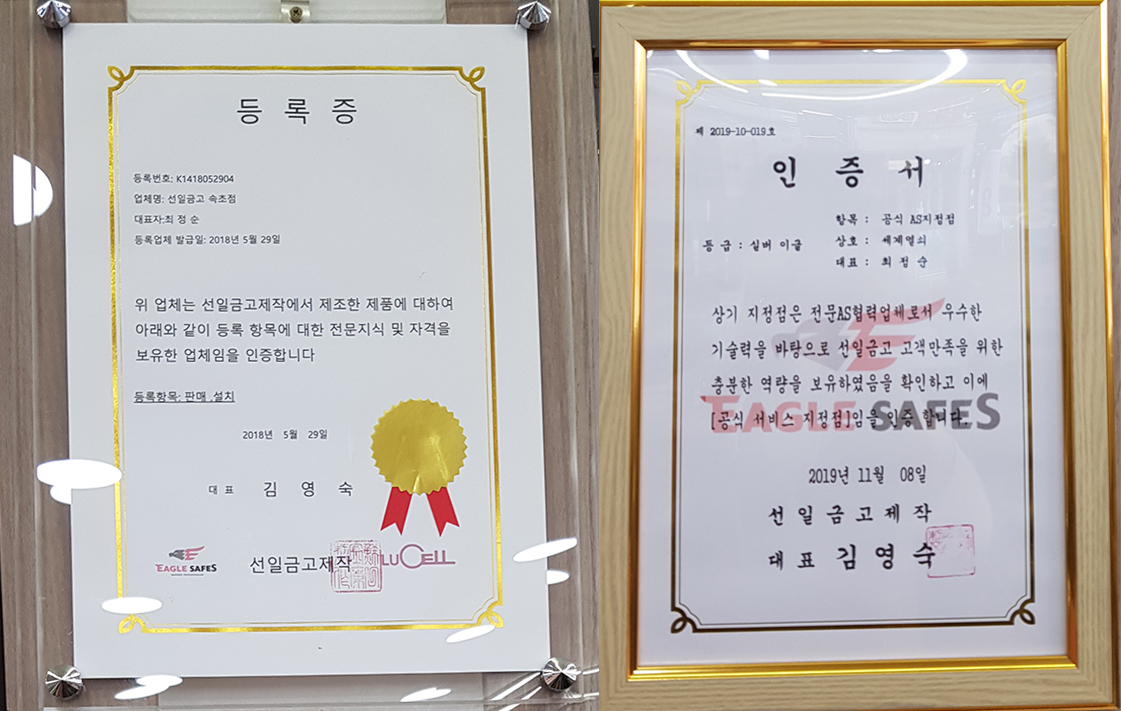 등 록 증
등록번호: K1418052904
업체명: 선일금고 속초점
대표자:최 정 순
등록업체 발급일: 2018년 5월 29일
위 업체는 선일금고제작에서 제조한 제품에 대하여
아래와 같이 등록 항목에 대한 전문지식 및 자격을
보유한 업체임을 인증합니다
등록항목: 판매 ,설치
2018년 5월 29일
대 표 김 영 숙
EAGLE SAFES
선일금고제작
LUCELL
제 2019-10-019호
인 증 서
항목 : 공식 AS지정점
등 급 : 실버 이글
상호 : 세계열쇠
대표 : 최 정 순
상기 지정점은 전문AS협력업체로서 우수한
기술력을 바탕으로 선일금고 고객만족을 위한
충분한 역량을 보유하였음을 확인하고 이에
[공식 서비스 지정점]임을 인증 합니다.
EAGLE SAFES
2019년 11월 08일
선 일 금 고 제 작
대 표 김 영 숙